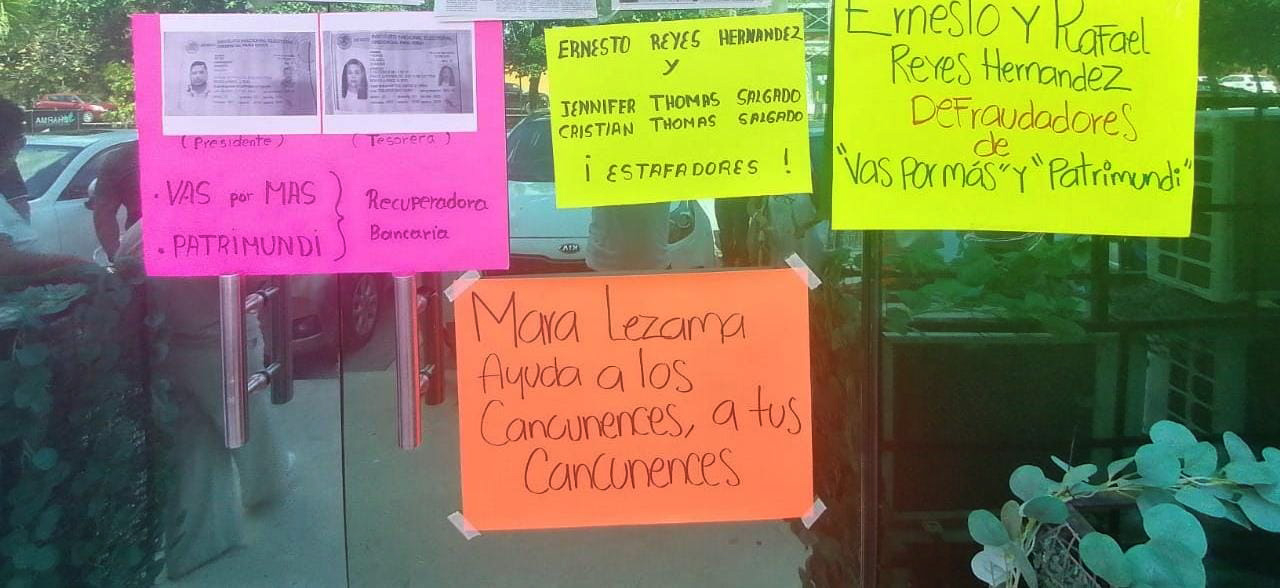 INSTITUTO NACIONAL ELECTORAL
(Presidente)
(Tesorera)
• VAS por MAS
• PATRIMUNDI
Recuperadora
Bancaria
ERNESTO REYES HERNANDEZ
Y
JENNIFER THOMAS SALGADO
CRISTIAN THOMAS SALGADO
¡ ESTAFADORES !
Ernesto y Rafael
Reyes Hernandez
DeFraudadores
de
"Vas Por más" Y "Patrimundi"
Mara Lezama
Ayuda a los
Cancunences, a tus
Cancunences
KIA